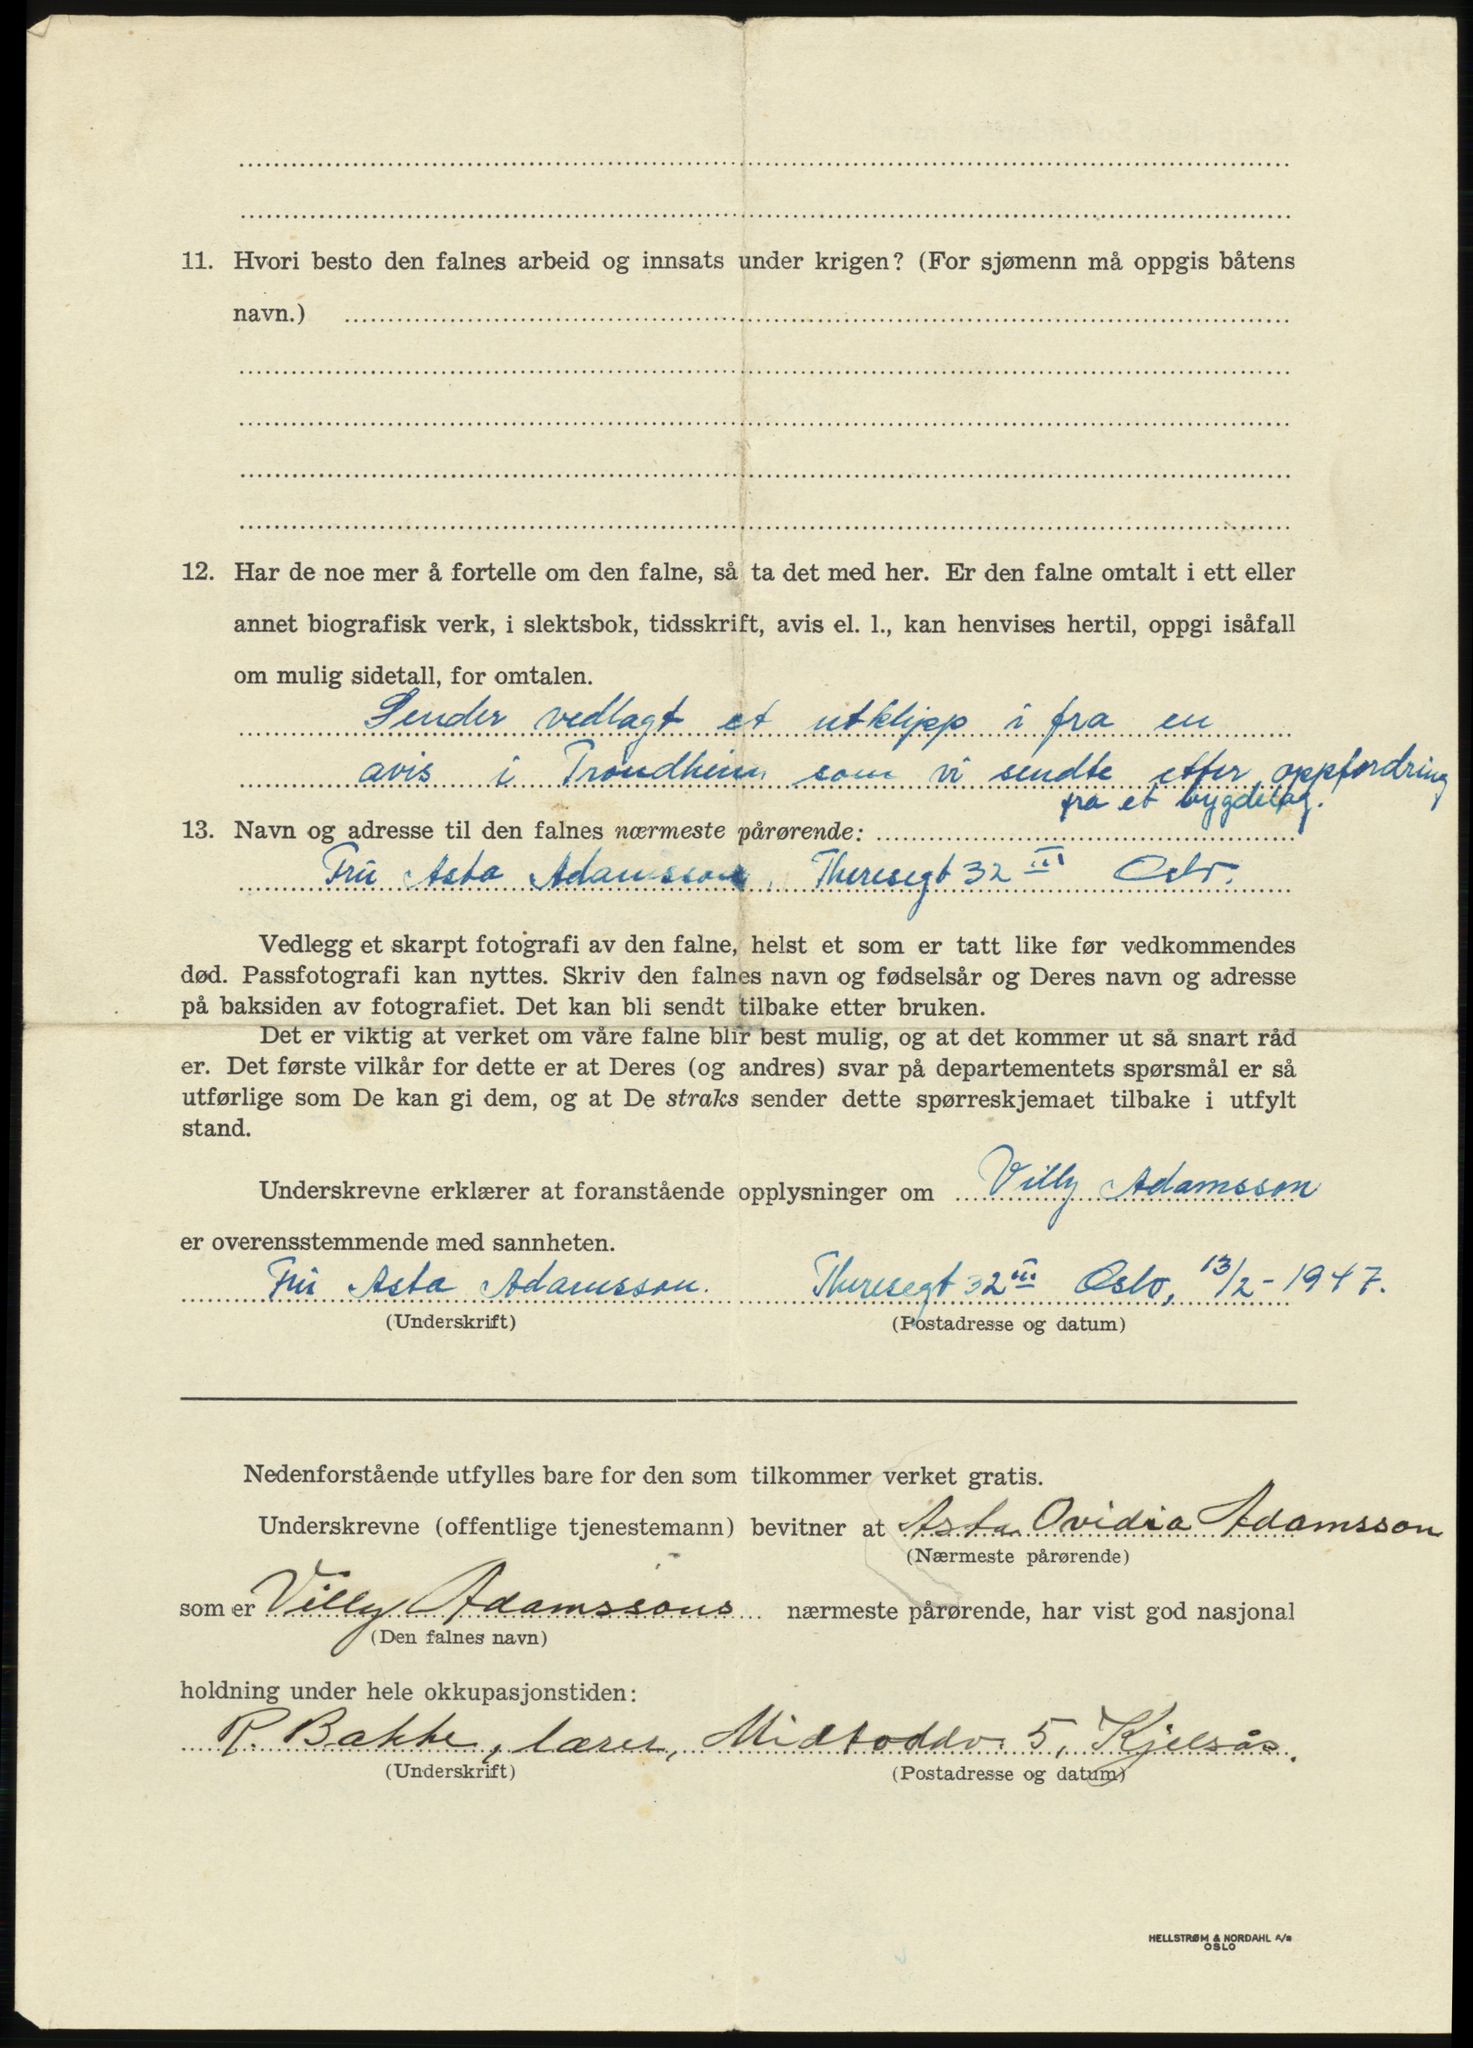 11. Hvori besto den falnes arbeid og innsats under krigen? (For sjømenn må oppgis båtens
navn.)
12. Har de noe mer å fortelle om den falne, så ta det med her. Er den falne omtalt i ett eller
annet biografisk verk, i slektsbok, tidsskrift, avis el. l., kan henvises hertil, oppgi isåfall
om mulig sidetall, for omtalen.
Sender vedlagt et utklipp i fra en
avis i Trondheim som vi sendte etter oppfordring
fra et bygdelag.
13. Navn og adresse til den falnes nærmeste pårørende:
Fru Asta Adamsson, Theresegt 32 III Oslo.
Vedlegg et skarpt fotografi av den falne, helst et som er tatt like før vedkommendes
død. Passfotografi kan nyttes. Skriv den falnes navn og fødselsår og Deres navn og adresse
på baksiden av fotografiet. Det kan bli sendt tilbake etter bruken.
Det er viktig at verket om våre falne blir best mulig, og at det kommer ut så snart råd
er. Det første vilkår for dette er at Deres (og andres) svar på departementets spørsmål er så
utførlige som De kan gi dem, og at De straks sender dette spørreskjemaet tilbake i utfylt
stand.
Underskrevne erklærer at foranstående opplysninger om Villy Adamsson
er overensstemmende med sannheten.
Fru Asta Adamsson. Theresegt 32 III Oslo, 13/2-1947.
(Underskrift) (Postadresse og datum)
Nedenforstående utfylles bare for den som tilkommer verket gratis.
Underskrevne (offentlige tjenestemann) bevitner at Asta Ovidia Adamsson
(Nærmeste pårørende)
som er Villy Adamssons nærmeste pårørende, har vist god nasjonal
(Den falnes navn)
holdning under hele okkupasjonstiden:
R. Bakke, lærer, Midtoddv. 5, Kjelsås.
(Underskrift) (Postadresse og datum)
HELLSTRØM & NORDAHL A/S
OSLO